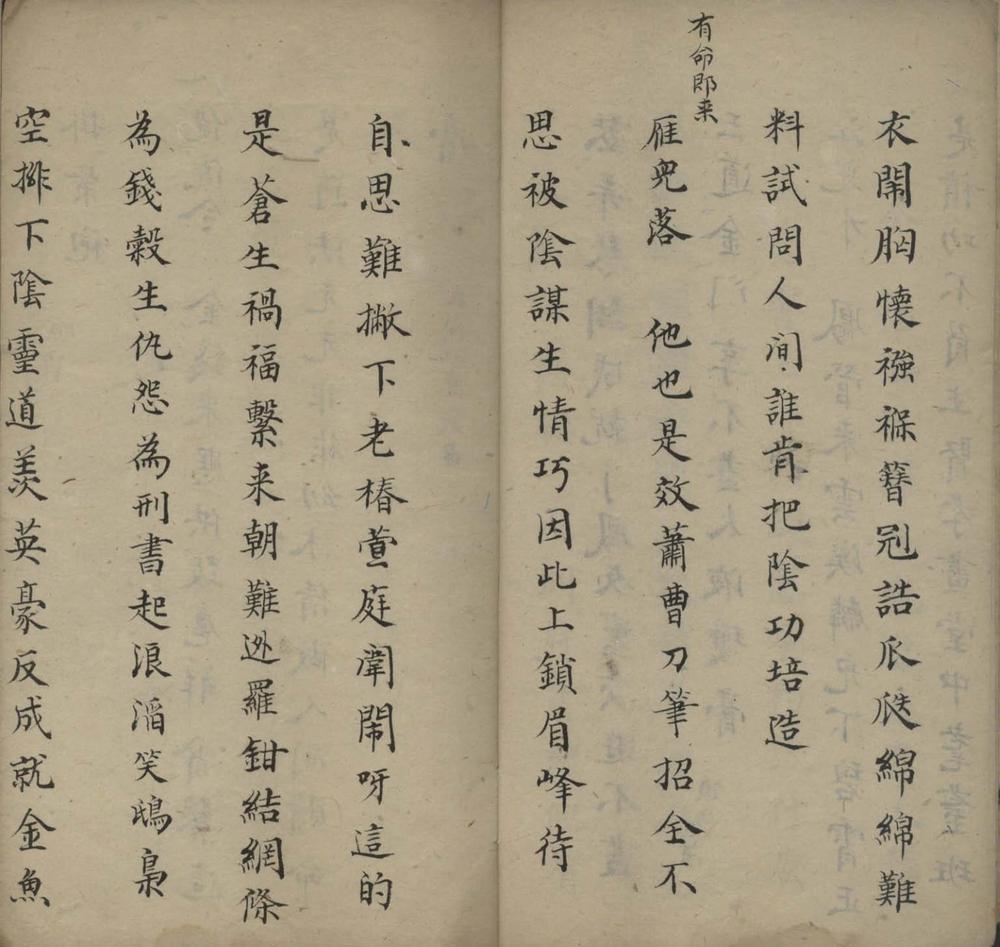 衣鬧胸懷襁褓簪冠誥爪瓞綿綿難
料試問人间誰肯把陰功培造
有命即来
雁兜落 他也是效蕭曹刀筆招全不
思被陰謀生情巧因此上鎖眉峰待
自思難撇下老椿萱庭闈鬧呀這的
是蒼生禍福繫来朝難逃羅鉗結網條
為錢榖生仇怨為刑書起浪滔笑鴟梟
空排下陰靈道羨英豪反成就金魚